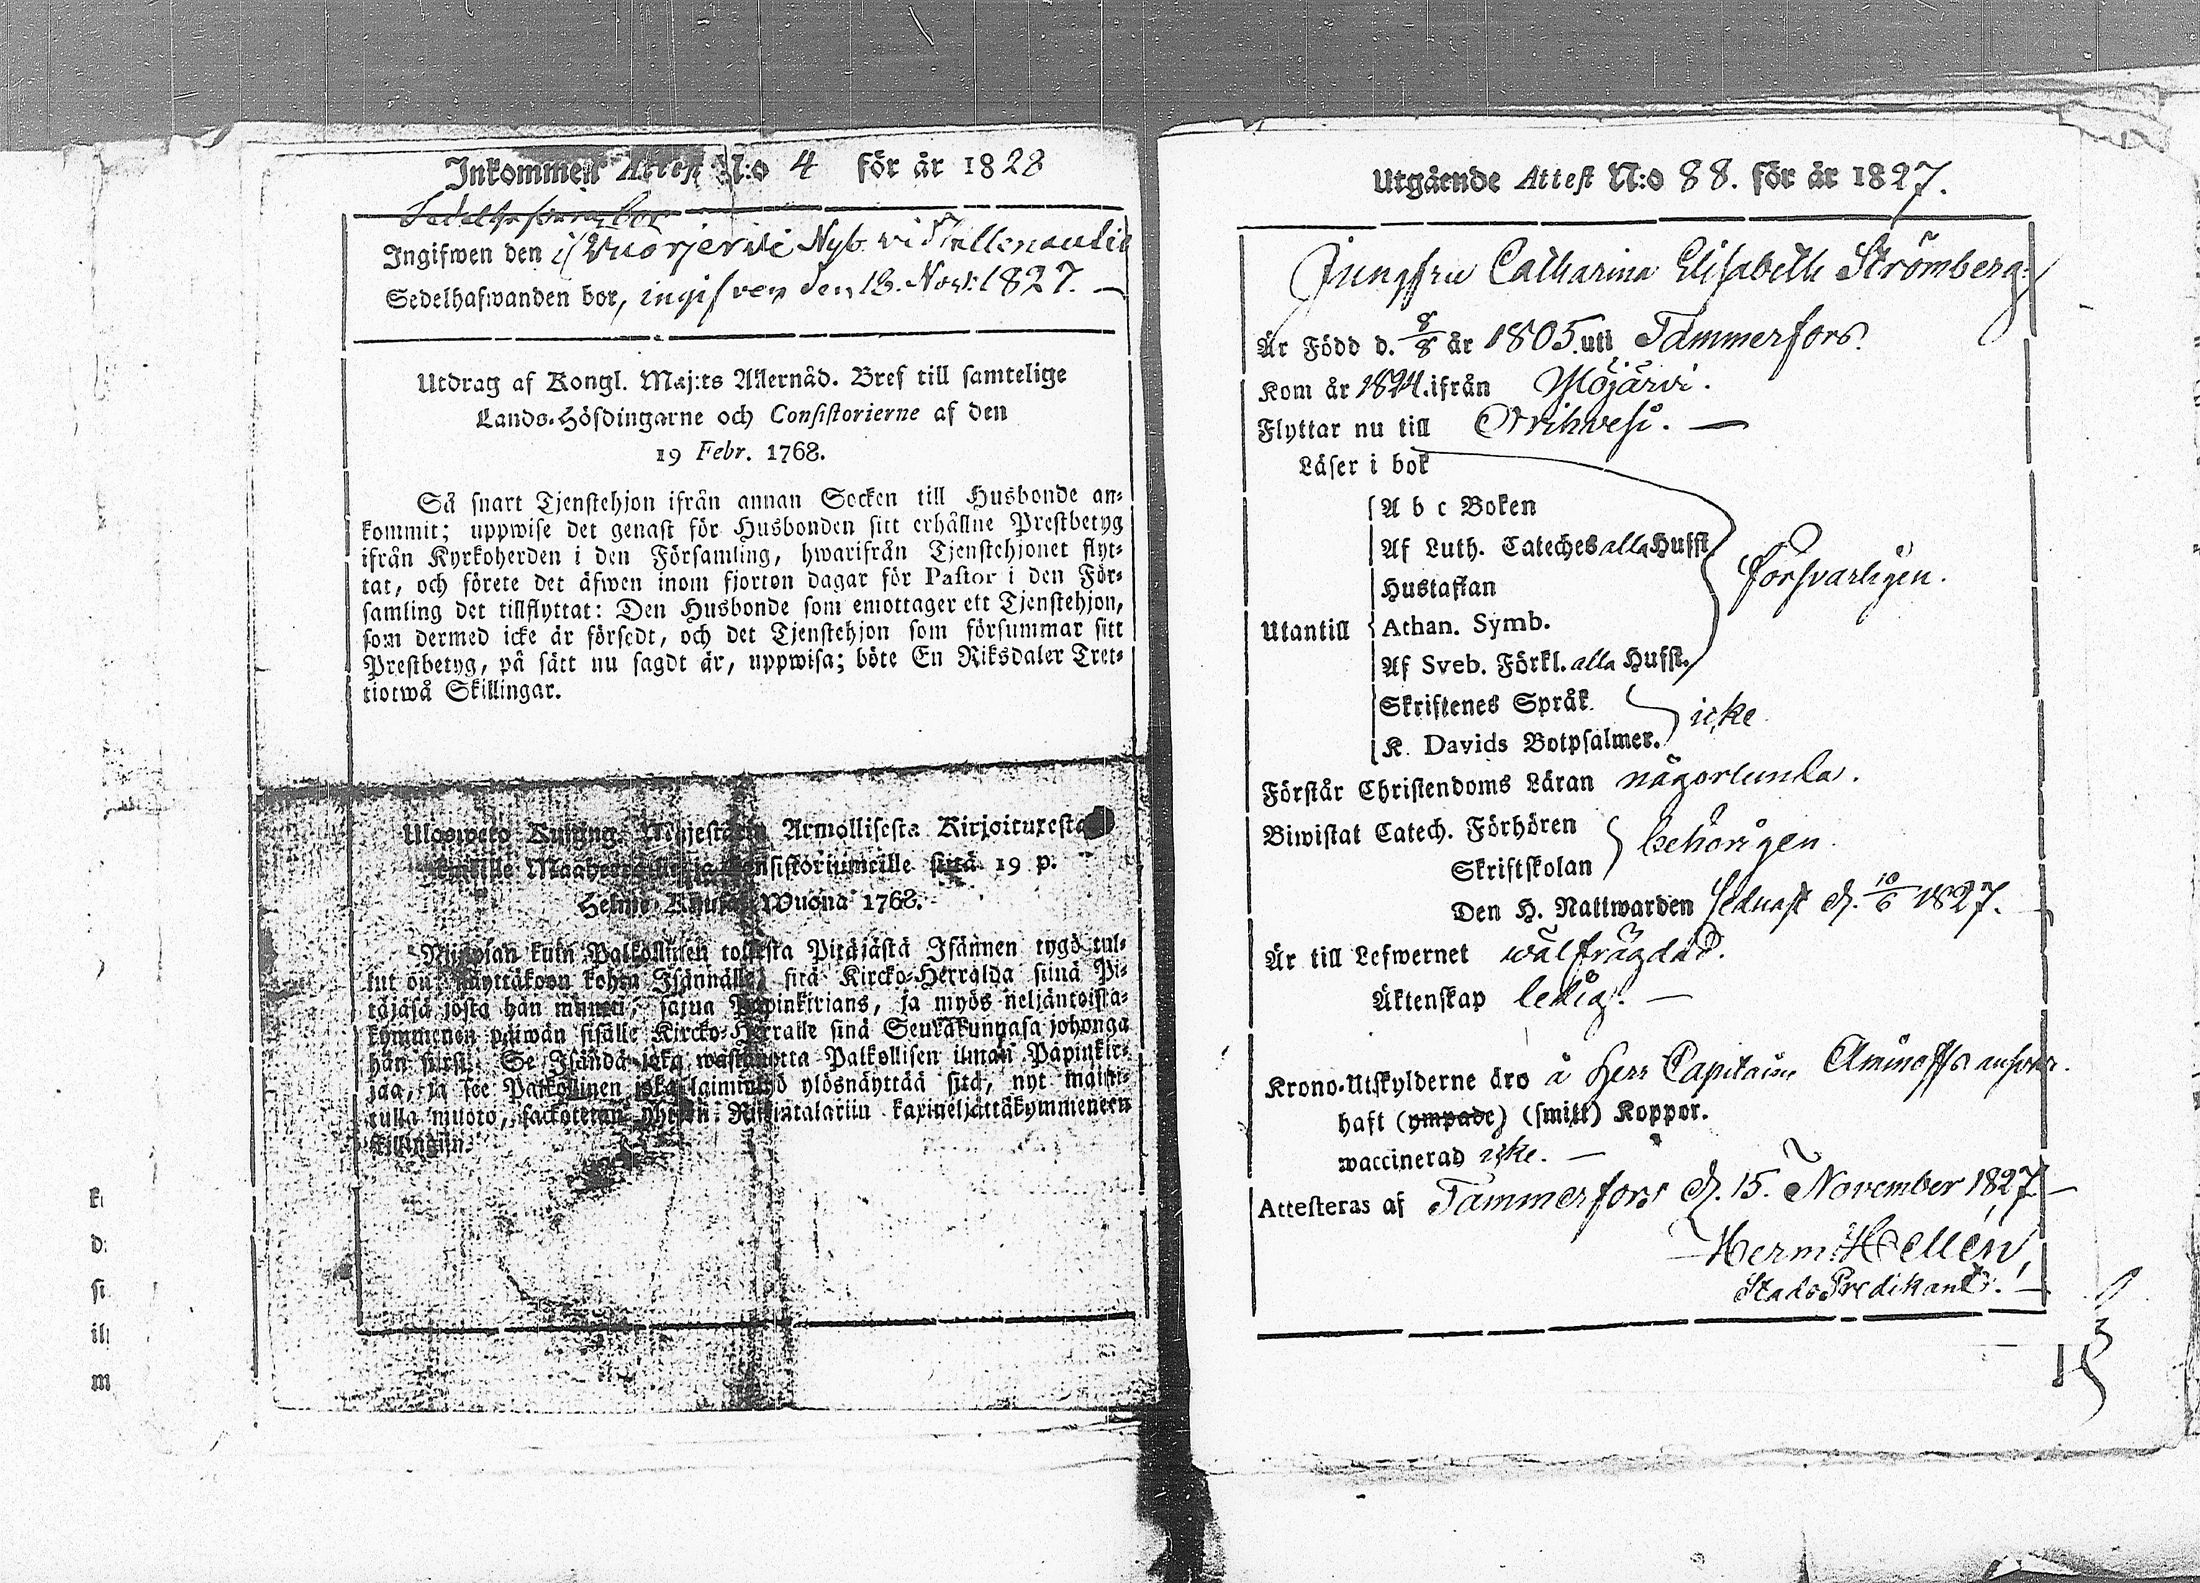 Inkommen Attest N:o 4 för år 1828
Sedelhafwand bor
Ingifwen den i Wuorjerwi Nyb. vi
Sedelhafwanden bor, ingifven den 13. Nov: 1827. —
Utdrag af Kongl. Maj:ts Allernåd. Bref till samtelige
Lands-Höfdingarne och Consistorierne af den
19 Febr. 1768.
Så snart Tjenstehjon ifrån annan Socken till Husbonde an-
kommit; uppwise det genast för Husbonden sitt erhållne Prestbetyg
ifrån Kyrkoherden i den Församling, hwarifrån Tjenstehjonet flyt-
tat, och förete det äfwen inom fjorton dagar för Pastor i den För-
samling det tillflyttat: Den Husbonde som emottager ett Tjenstehjon,
som dermed icke är försedt, och det Tjenstehjon som försummar sitt
Prestbetyg, på sätt nu sagdt är, uppwisa; böte En Riksdaler Tret-
tiotwå Skillingar.
Ulosweto Kuning. Majestetin Armollisesta Kirjoituxesta
Maaherroille ja Consistoriumeille siitä 19 p.
Helme Kuusa Wuona 1768.
Niinpian kuin Palkollinen toisesta Pitäjästä Isännen tygö tul-
lut on, näyttäkoon kohta Isännälle, sitä Kircko-Herralda siinä Pi-
täjäsä josta hän muutti, saatua Papinkirians, ja myös neljäntoista-
kymmenen päiwän sisälle Kircko-Herralle siinä Seurakunnasa johonga
hän siirsi. Se Isändä joka wastanotta Palkollisen ilman Papinkir-
jaa, ja see Palkollinen joka laiminlyö ylösnäyttää sitä, nyt maini-
tulla muoto, sackotetan yhteen Rijkintalariin kaxineljättäkymmeneen
killingiin.
Utgående Attest N:o 88. för år 1827.
Jungfru Catharina Elisabeth Strömberg
Är Född d. 8/8 år 1805. uti Tammerfors.
Kom år 1824. ifrån Yl̈öjärvi.
Flyttar nu till Orihvesi. —
Läser i bok
A b c Boken
Af Luth. Cateches alla Hufst
Hustaflan
försvarligen.
Utantill Athan. Symb.
Af Sveb. Förkl. alla Hufst.
Skriftenes Språk
icke
K. Davids Botpsalmer.
Förstår Christendoms Läran någorlunda.
Biwistat Catech. Förhören
behörigen.
Skriftskolan
Den H. Nattwarden sednast d. 10/6 1827.
Är till Lefwernet wälfrägdad.
Äktenskap ledig. —
Krono-Utskylderne äro å Herr Capitaine Aminoffs answar.
haft (ympade) (smitt) Koppor.
waccinerad icke. —
Attesteras af Tammerfors d. 15. November 1827 —
Herm: Hellén,
Stads Predikant. —
k
d
si
m